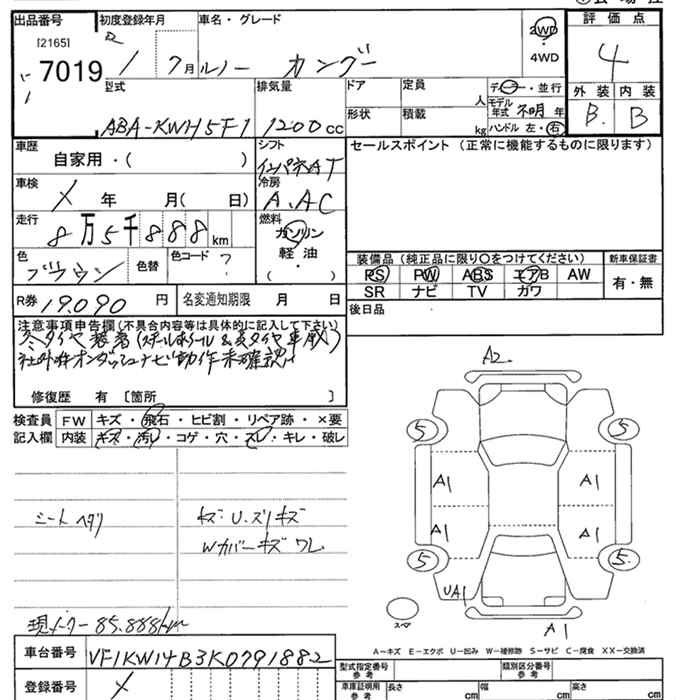 出品番号 初度登録年月 車名・グレード 評価点
[2165] 2WD
7019 1 7月 ルノー カングー 4WD 4
型式 排気量 ドア 定員 人 ディーラー・並行 外装 内装
ABA-KWH5F1 1200cc 形状 積載 kg モデル年式 不明年 B B
ハンドル 左・右
車歴 シフト セールスポイント(正常に機能するものに限ります)
自家用・( ) インパネAT
車検 冷房
X 年 月( 日) A.AC
走行 燃料
8万5千888km ガソリン
軽油
( )
色 色替 色コード 装備品(純正品に限り○をつけてください) 新車保証書
ブラウン ? PS PW ABS エアB AW 有・無
SR ナビ TV カワ
R券 19.090円 名変通知期限 月 日 後日品
注意事項申告欄(不具合内容等は具体的に記入して下さい)
冬タイヤ装着(スチールホイール&夏タイヤ車載)
社外オンダッシュナビ動作未確認
修復歴 有 [箇所 ]
検査員 FW キズ・飛石・ヒビ割・リペア跡・×要
記入欄 内装 キズ・汚レ・コゲ・穴・スレ・キレ・破レ
A2
5 5
A1 A1
シート ヘタリ キズ:U.ズリキズ
Wカバーキズ ワレ
A1 A1
5 5.
UA1
スペア
A1
現メーター 85.888km
A-キズ E-エクボ U-凹み W-補修跡 S-サビ C-腐食 XX-交換済
車台番号 VF1KW14B3K0791882
型式指定番号 参考 類別区分番号 参考
登録番号 X 車庫証明用 参考 長さ cm 幅 cm 高さ cm